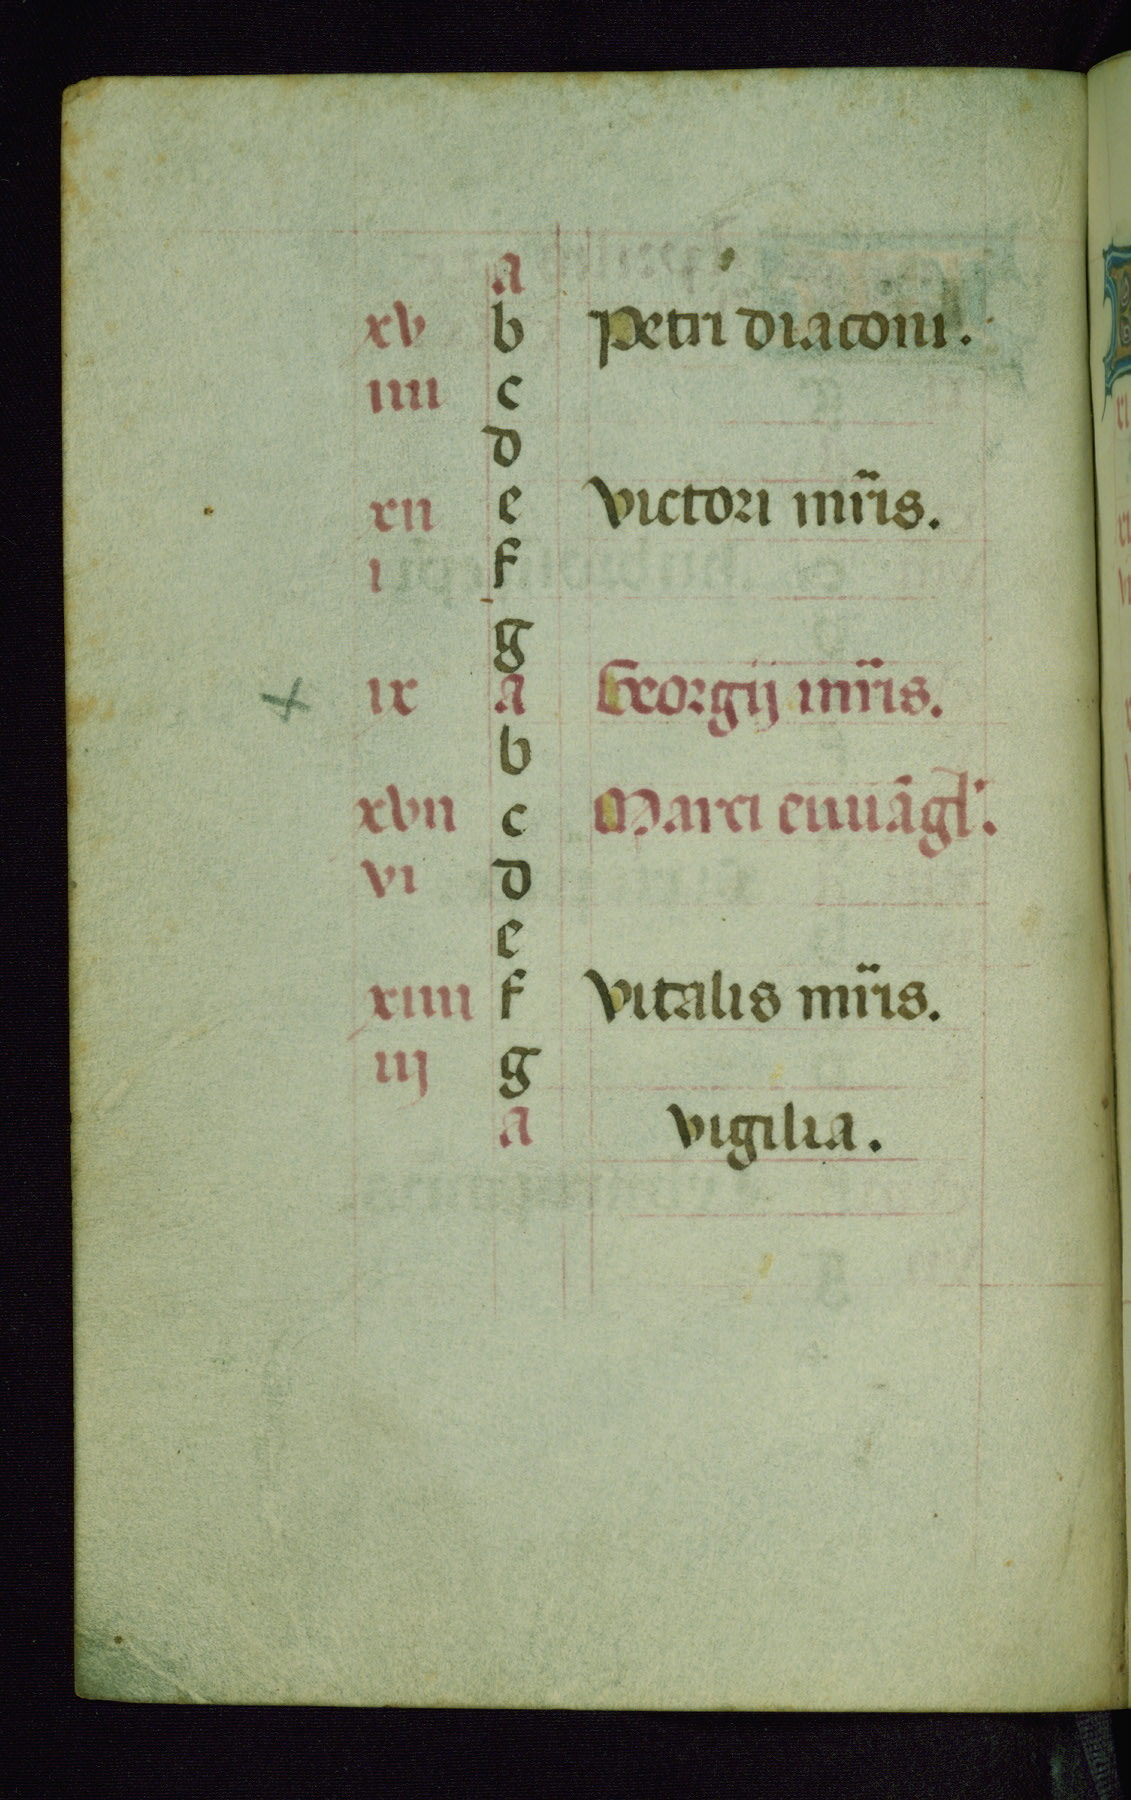 a
xv b Petri diaconi.
iiii c
d
xii e Victori mr̃is.
i f
g
ix a Georgij mr̃is.
b
xvii c Marci euuãgl'.
vi d
e
xiiii f Vitalis mr̃is.
iij g
a vigilia.